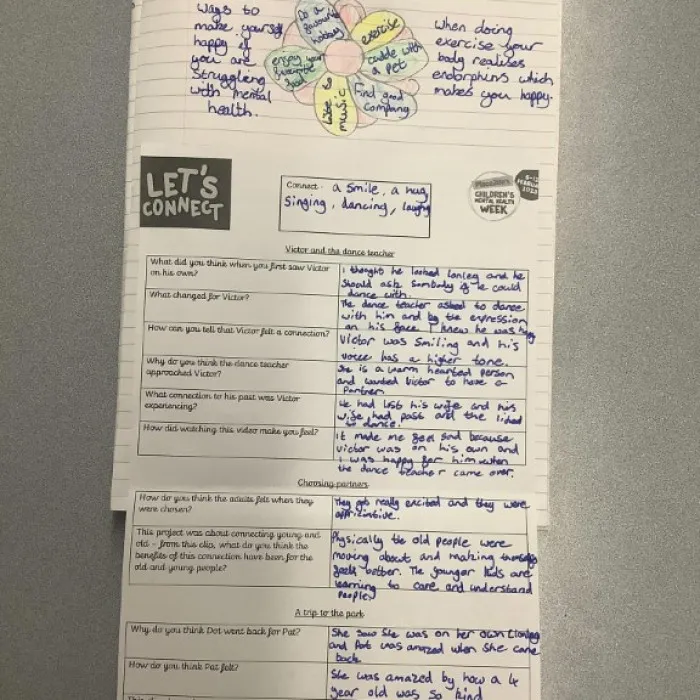 Ways to
make yourself
happy if
you are
struggling
with mental
health.
Do a
favourite
hobby
exercise
cuddle with
a pet
Find good
company
music
enjoy your
favourite
food
When doing
exercise your
body realises
endorphins which
makes you happy.
LET'S
CONNECT
Connect - a smile, a hug,
singing, dancing, laughing
CHILDREN'S
MENTAL HEALTH
WEEK
Victor and the dance teacher
What did you think when you first saw Victor
on his own?
I thought he looked lonley and he
should ask sombody if he could
dance with.
What changed for Victor?
The dance teacher asked to dance
with him and by the expression
on his face I knew he was happy
How can you tell that Victor felt a connection?
Victor was smiling and his
voice has a higher tone.
Why do you think the dance teacher
approached Victor?
She is a warm hearted person
and wanted Victor to have a
Partner.
What connection to his past was Victor
experiencing?
He had lost his wife and his
wife had past and the liked
to dance.
How did watching this video make you feel?
It made me feel sad because
victor was on his own and
I was happy for him when
the dance teacher came over.
Choosing partners
How do you think the adults felt when they
were chosen?
They got really excited and they were
This project was about connecting young and
old – from this clip, what do you think the
benefits of this connection have been for the
old and young people?
Physically the old people were
moving about and making themselfs
feel better. The younger kids are
learning to care and understand
people.
A trip to the park
Why do you think Dot went back for Pat?
She saw she was on her own
and Pat was amazed when she came
back
How do you think Pat felt?
She was amazed by how a 4
year old was so kind